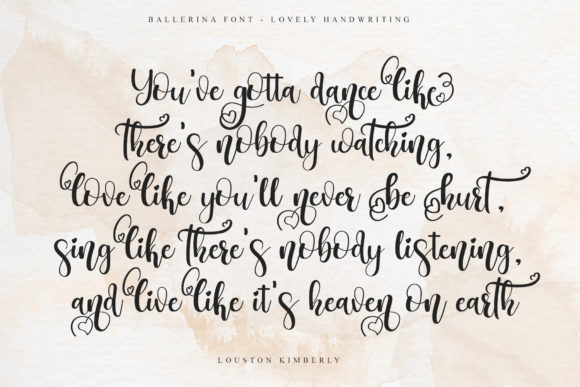 BALLERINA FONT - LOVELY HANDWRITING
You've gotta dance like
there's nobody watching,
love like you'll never be hurt,
sing like there's nobody listening,
and live like it's heaven on earth
LOUSTON KIMBERLY